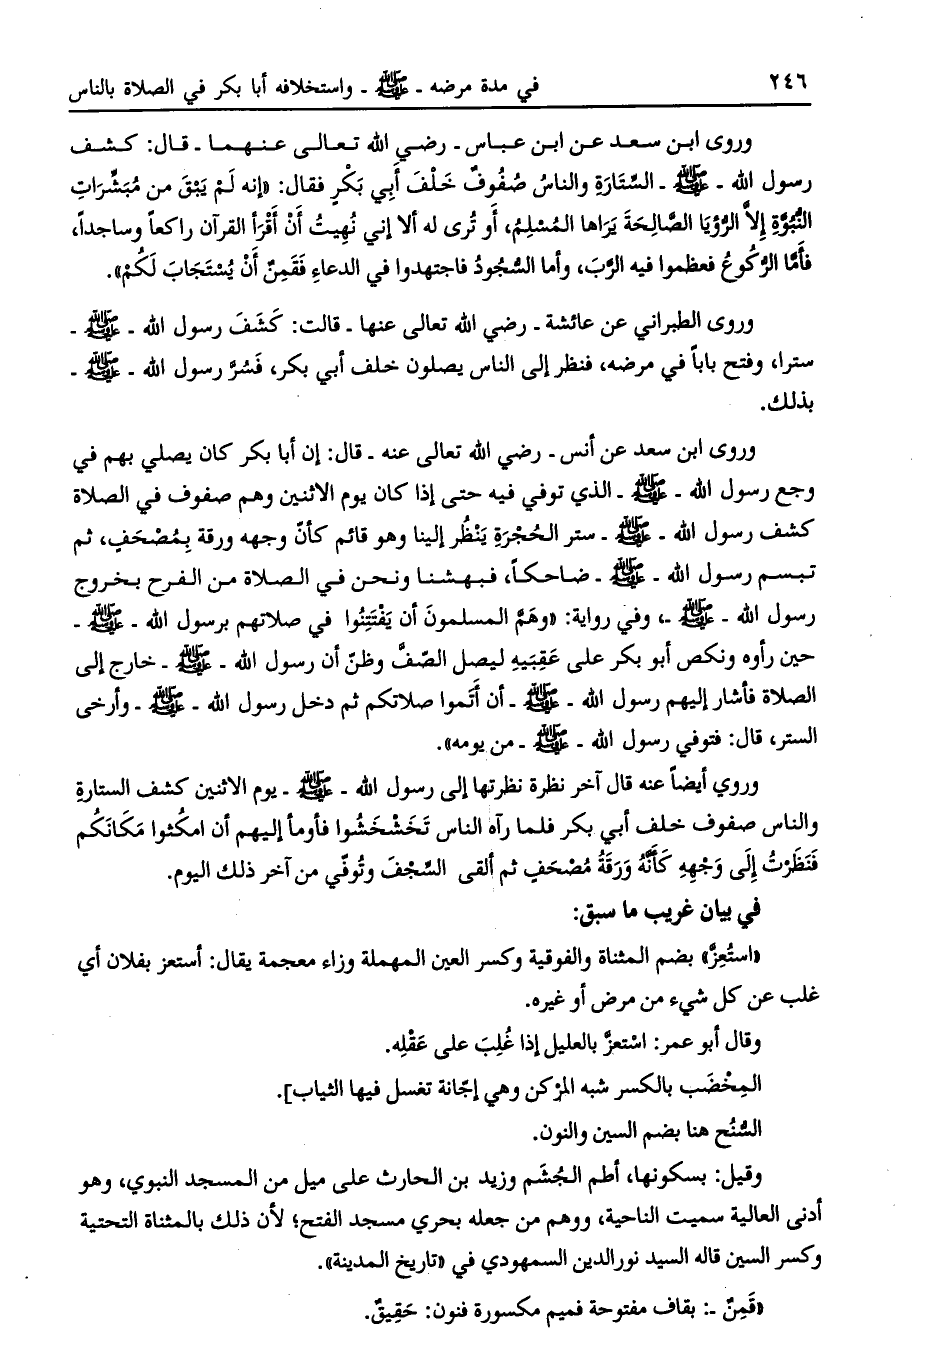 ٢٤٦ في مدة مرضه ـ ﷺ ـ واستخلافه أبا بكر في الصلاة بالناس
وروى ابن سعد عن ابن عباس ـ رضي الله تعالى عنهما ـ قال: كشف
رسول الله ـ ﷺ ـ السِّتَارَةِ والناسُ صُفُوفٌ خَلْفَ أَبِي بَكْرٍ فقال: «إنه لَمْ يَبْقَ من مُبَشِّرَاتِ
النُّبُوَّةِ إلاَّ الرُّؤيَا الصَّالِحَةَ يَرَاها المُسْلِمُ، أو تُرى له ألا إني نُهِيتُ أَنْ أَقْرَأ القرآن راكعاً وساجداً،
فأَمَّا الرُّكُوعُ فعظموا فيه الرَّبَ، وأما السُّجُودُ فاجتهدوا في الدعاءِ فَقَمِنٌ أَنْ يُسْتَجَابَ لَكُمْ».
وروى الطبراني عن عائشة ـ رضي الله تعالى عنها ـ قالت: كَشَفَ رسول الله ـ ﷺ ـ
سترا، وفتح باباً في مرضه، فنظر إلى الناس يصلون خلف أبي بكر، فَسُرَّ رسول الله ـ ﷺ ـ
بذلك.
وروى ابن سعد عن أنس ـ رضي الله تعالى عنه ـ قال: إن أبا بكر كان يصلي بهم في
وجع رسول الله ـ ﷺ ـ الذي توفي فيه حتى إذا كان يوم الاثنين وهم صفوف في الصلاة
كشف رسول الله ـ ﷺ ـ ستر الحُجْرَةِ يَنْظُر إلينا وهو قائم كأنّ وجهه ورقة بِمُصْحَفٍ، ثم
تبسم رسول الله ـ ﷺ ـ ضاحكاً، فبهشنا ونحن في الصلاة من الفرح بخروج
رسول الله ـ ﷺ ـ، وفي رواية: «وهَمَّ المسلمونَ أن يَفْتَتِنُوا في صلاتهم برسول الله ـ ﷺ ـ
حين رأوه ونكص أبو بكر على عَقِبَيهِ ليصل الصّفَّ وظنّ أن رسول الله ـ ﷺ ـ خارج إلى
الصلاة فأشار إليهم رسول الله ـ ﷺ ـ أن أَتَموا صلاتكم ثم دخل رسول الله ـ ﷺ ـ وأرخى
الستر، قال: فتوفي رسول الله ـ ﷺ ـ من يومه».
وروي أيضاً عنه قال آخر نظرة نظرتها إلى رسول الله ـ ﷺ ـ يوم الاثنين كشف الستارةِ
والناس صفوف خلف أبي بكر فلما رآه الناس تَخَشْخَشُوا فأومأ إليهم أن امكُثوا مَكَانَكُم
فَنَظَرْتُ إِلَى وَجْهِهِ كَأَنَّهُ وَرَقَةُ مُصْحَفٍ ثم ألقى السَّجْفَ وتُوفّي من آخر ذلك اليوم.
في بيان غريب ما سبق:
«استُعِزَّ» بضم المثناة والفوقية وكسر العين المهملة وزاء معجمة يقال: أستعز بفلان أي
غلب عن كل شيء من مرض أو غيره.
وقال أبو عمر: اسْتعزَّ بالعليل إذا غُلِبَ على عَقْلِه.
المِخْضَب بالكسر شبه المرْكن وهي إجّانة تغسل فيها الثياب].
السُّنُح هنا بضم السين والنون.
وقيل: بسكونها، أطم الجُشَم وزيد بن الحارث على ميل من المسجد النبوي، وهو
أدنى العالية سميت الناحية، ووهم من جعله بحري مسجد الفتح؛ لأن ذلك بالمثناة التحتية
وكسر السين قاله السيد نورالدين السمهودي في «تاريخ المدينة».
«قَمِنٌ ـ: بقاف مفتوحة فميم مكسورة فنون: حَقِيقٌ.